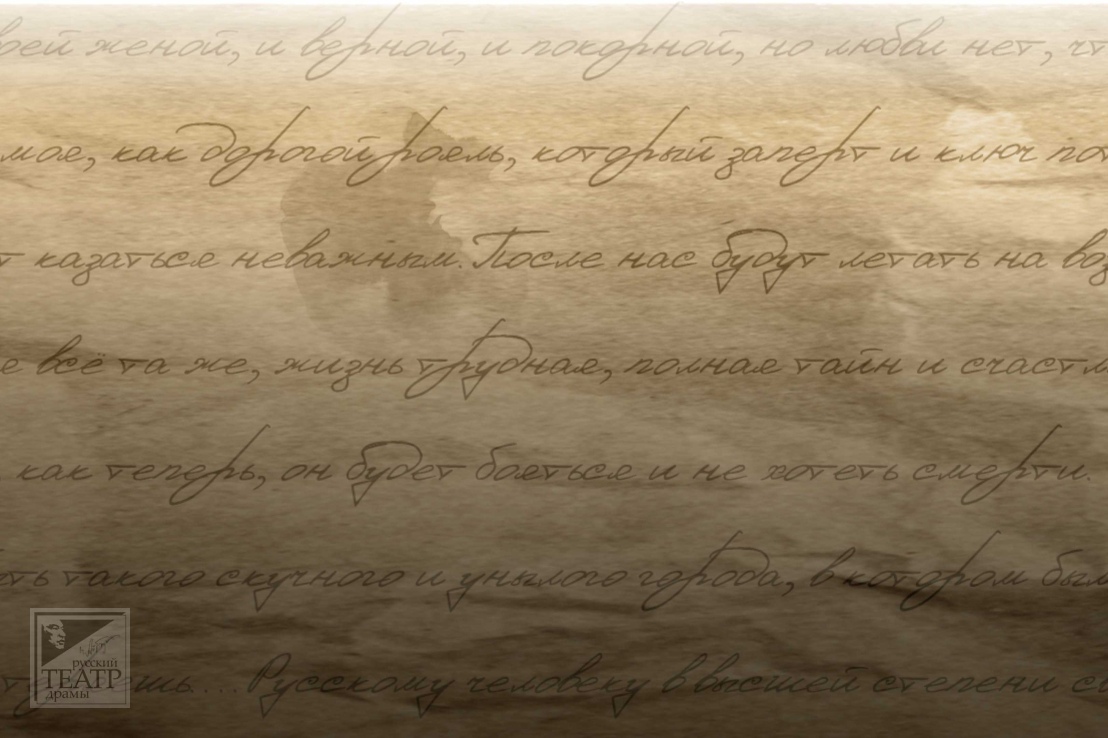 воей женой, и верной, и покорной, но любви нет, чт
моя, как дорогой рояль, который заперт и ключ пот
т казаться неважным. После нас будут летать на воз
е всё та же, жизнь трудная, полная тайн и счастл
как теперь, он будет бояться и не хотеть смерти.
ть такого скучного и унылого города, в котором был
шь.... Русскому человеку в высшей степени св
русский
ТЕАТР
драмы